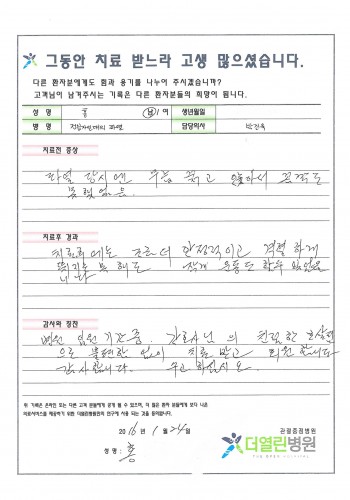 그동안 치료 받느라 고생 많으셨습니다.
다른 환자분에게도 힘과 용기를 나누어 주시겠습니까?
고객님이 남겨주시는 기록은 다른 환자분들의 희망이 됩니다.
성 명 홍 남/여 생년월일
병 명 전방십자인대의 파열 담당의사
치료전 증상
파열 당시엔 무릎 붓고 아파서 꼼짝도
못했었음.
치료후 경과
치료후에는 조금더 안정적이고 격렬하게
뛰지는 못해도 운동도 할수 있었습
니다
감사와 칭찬
병원 입원 기간중. 간호사님의 친절한
으로 불편한 없이 치료 받고 퇴원 합니다
감사합니다. 수고 하십시오.
위 기록은 온라인 또는 다른 고객 분들에게 공개 될 수 있으며, 더 많은 환자 분들에게 보다 나은
의료서비스를 제공하기 위한 더열린병원의 연구에 사용 되는 것을 동의합니다.
2016 년 1 월 24 일
성명 : 홍
관절중점병원
더열린병원
THE OPEN HOSPITAL